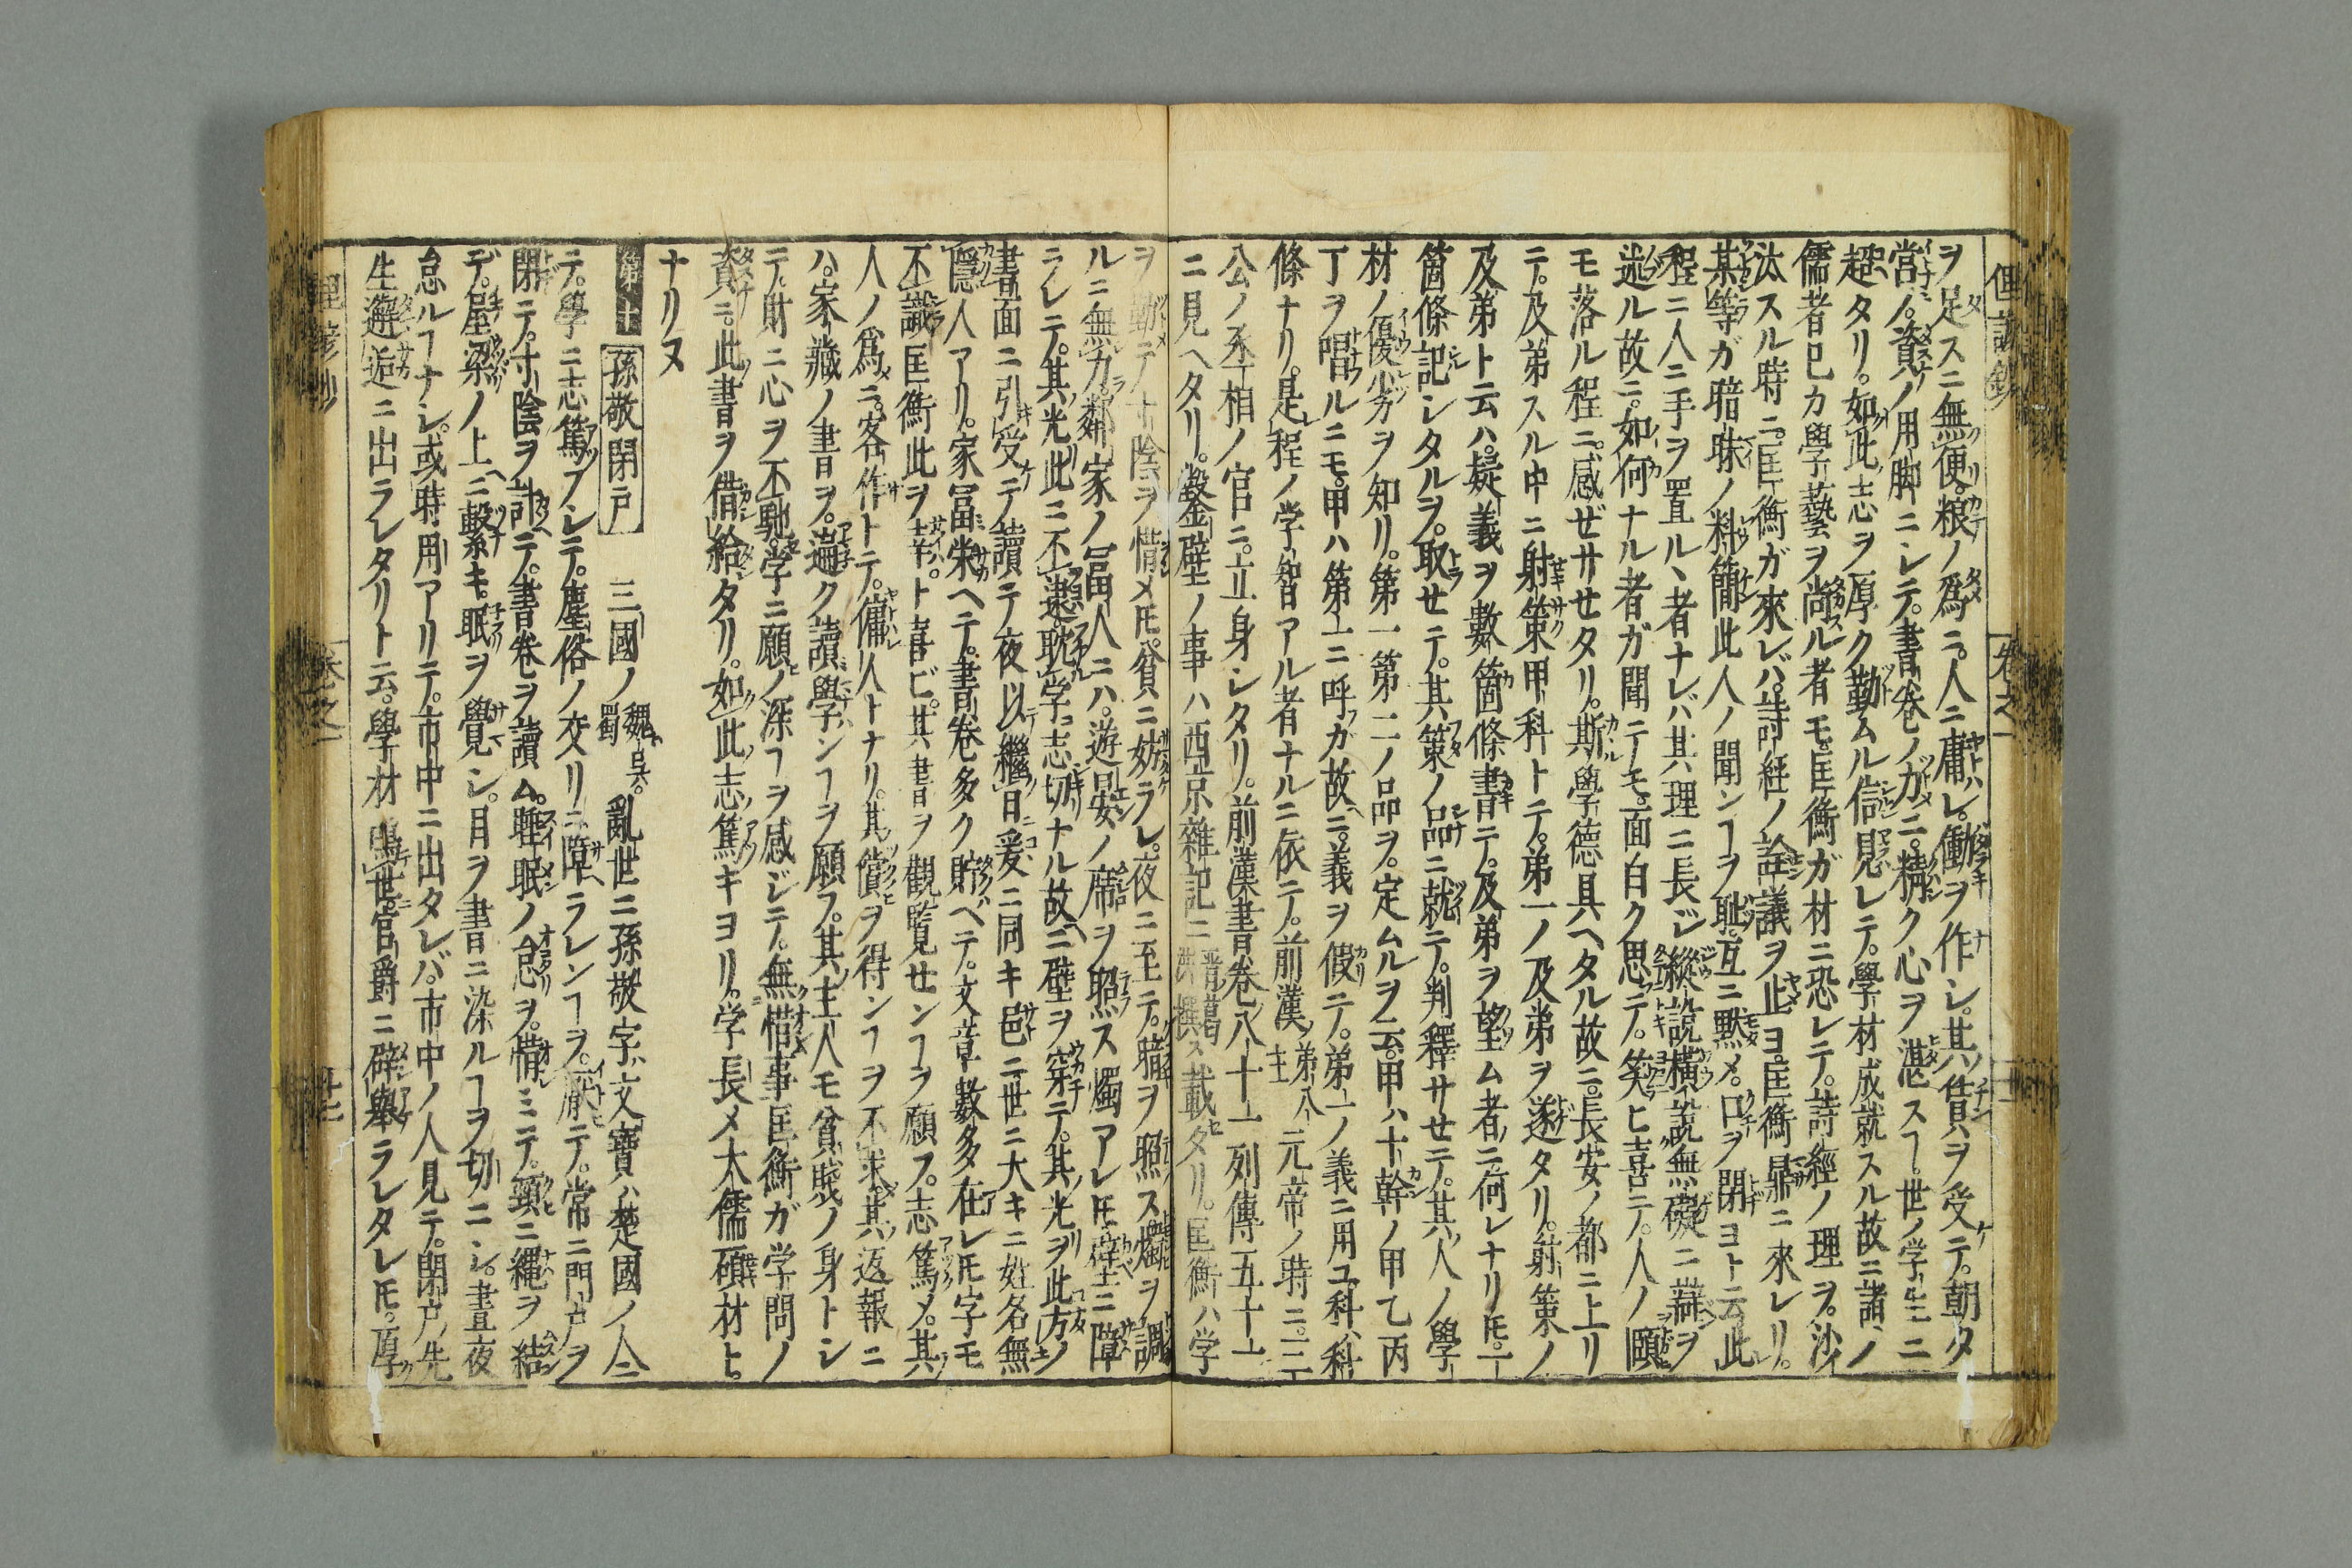 ヲ足スニ無便。粮ノ爲ニ。人ニ庸ハレ。働ヲ作シ。其賃ヲ受テ。朝夕
営ノ。資ノ用脚ニシテ。書巻ノカニ。精ク心ヲ湛スヿ。世ノ学生ニ
超タリ。如此志ヲ厚ク勤ムル信見レテ。學材成就スル故ニ諸ノ
儒者已カ學藝ヲ尚ル者モ。匡衡ガ材ニ恐レテ。詩經ノ理ヲ。沙
汰スル時ニ。匡衡ガ來レバ。詩経ノ詮議ヲ止ヨ。匡衡鼎ニ來レリ。
某等ガ暗昧ノ料簡此人ノ聞ンヿヲ耻。互ニ黙メ。口ヲ閉ヨト云此
程ニ人ニ手ヲ置ル、者ナレバ其理ニ長ジ縱説横説無礙ニ辯ヲ
述ル故ニ。如何ナル者ガ聞テモ。面白ク思テ。笑ヒ喜テ。人ノ頤
モ落ル程ニ。感ゼサセタリ。斯學德具ヘタル故ニ。長安ノ都ニ上リ
テ。及弟スル中ニ射策甲科トテ。弟一ノ及弟ヲ遂タリ。射策ノ
及弟ト云ハ。疑義ヲ數箇條書テ。及弟ヲ望ム者ニ何レナリ𪜈。一
箇條記シタルヲ。取セテ。其策ノ品ニ就テ。判釋サセテ。其人ノ學
材ノ優劣ヲ知リ。第一第二ノ品ヲ。定ムルヲ云。甲ハ十幹ノ甲乙丙
丁ヲ唱ルニモ。甲ハ第一ニ呼ガ故ニ。義ヲ假テ。弟一ノ義ニ用ユ科ハ科
條ナリ。是程ノ学智アル者ナルニ依テ。前漢弟八主元帝ノ時ニ。三
公ノ丞相ノ官ニ。立身シタリ。前漢書巻八十一列傳五十一
ニ見ヘタリ。鑿壁ノ事ハ西京雜記ニ晉葛洪撰ス載タリ。匡衡ハ学
ヲ勤テ寸陰ヲ惜メ𪜈。貧ニ妨ラレ。夜ニ至テ。牖ヲ照ス燭ヲ調
ルニ無力鄰家ノ冨人ニハ。遊晏ノ席ヲ照ス燭アレ𪜈壁ニ障
ラレテ。其光此ニ不逮。耽学志切ナル故ニ壁ヲ穿テ。其光ヲ此方ノ
書面ニ引受テ讀テ夜以繼日爰ニ同キ邑ニ世ニ大キニ姓名無
隱人アリ。家冨栄ヘテ。書巻多ク貯ヘテ。文章數多在レ𪜈字モ
不識匡衡此ヲ幸。ト喜ビ。其書ヲ觀覧センヿヲ願フ。志篤メ。其
人ノ爲ニ。客作トテ。傭人トナリ。其償ヲ得ンヿヲ不求。其返報ニ
ハ。家ニ藏ノ書ヲ。遍ク讀學ンヿヲ願フ。其主人モ貧賎ノ身トシ
テ。財ニ心ヲ不馳。学ニ願ノ深ヿヲ感ジテ。無惜事匡衡ガ学問ノ
資ニ。此書ヲ借給タリ。如此志篤キヨリ。学長メ大儒碩材ト。
ナリヌ
第十 孫敬閉戸 三國ノ魏呉。蜀亂世ニ孫敬字文寶ハ楚國ノ人ニ
テ。學ニ志篤フシテ。塵俗ノ交リニ障ラレンヿヲ。厭テ。常ニ門戸ヲ
閉テ。寸陰ヲ計テ。書巻ヲ讀ム。睡眠ノ怠ヲ。惜ミテ。頸ニ繩ヲ結
デ。屋梁ノ上ニ繫キ。眠ヲ覺シ。目ヲ書ニ染ルヿヲ切ニシ。晝夜
怠ルヿナシ。或時用アリテ。市中ニ出タレバ。市中ノ人見テ。閉戸先
生邂逅ニ出ラレタリト云。學材鳴世。官爵ニ辟舉ラレタレ𪜈。厚
巻之一